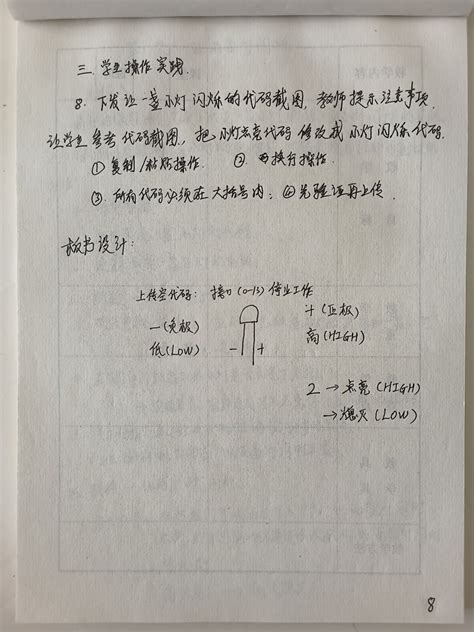 三 学生操作实践
8. 下发让一盏小灯闪烁的代码截图,教师提示注意事项
让学生参考代码截图,把小灯点亮代码修改成小灯闪烁代码.
① 复制/粘贴操作. ② 切换行操作.
③ 所有代码必须在大括号内; ④ 先验证再上传.
板书设计:
上传空代码: 接口(0-13)停止工作
+(正极)
-(负极)
高(HIGH)
低(LOW)
- +
2 → 点亮(HIGH)
→ 熄灭(LOW)
8